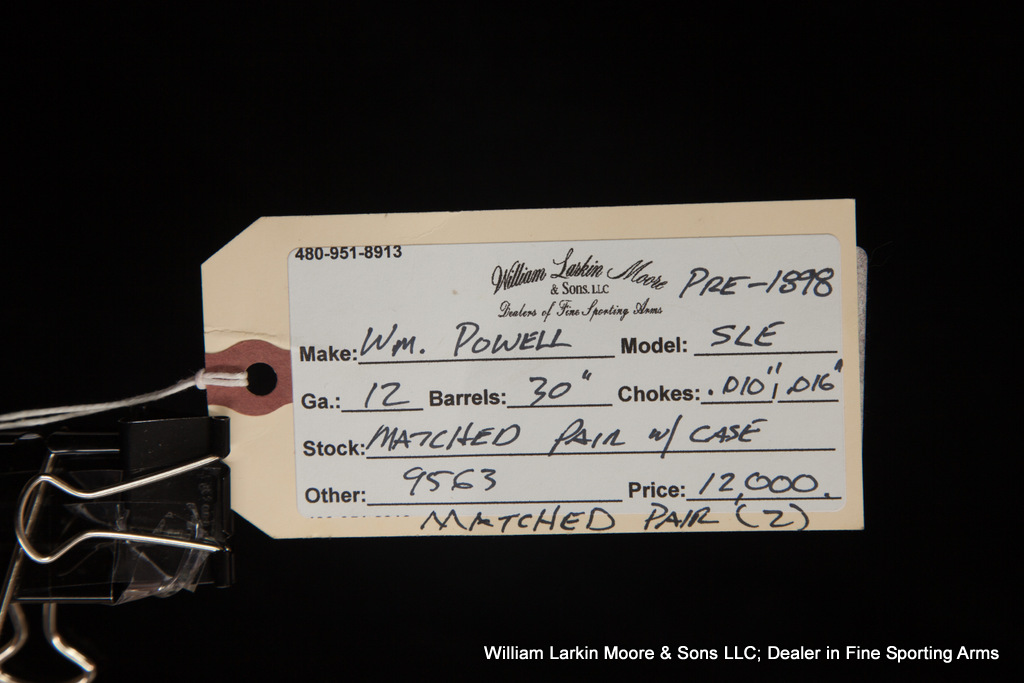 480-951-8913
William Larkin Moore
& SONS. LLC
PRE-1898
Dealers of Fine Sporting Arms
Make: WM. POWELL Model: SLE
Ga.: 12 Barrels: 30" Chokes: .010", .016"
Stock: MATCHED PAIR w/ CASE
Other: 9563 Price: 12,000.
MATCHED PAIR (2)
William Larkin Moore & Sons LLC; Dealer in Fine Sporting Arms